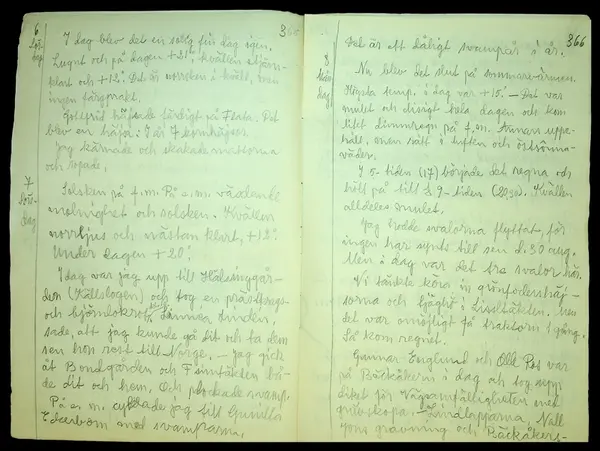 6
Lör-
dag
I dag blev det en solig fin dag igen.
Lugnt och på dagen +21°, kvällen stjärn-
klart och +12°. Det är norrsken i kväll, men
ingen färgprakt.
Gottfrid höjsade färdigt på Flata. Det
blev en häsja: I allt 7 kornhäsjor.
Jag kärnade och skakade mattorna
och sopade.
7
Sön-
dag
Solsken på f.m. På e.m. växlande
molnighet och solsken. Kvällen
norrljus och nästan klart, +12°.
Under dagen +20°.
I dag var jag upp till Hälsinggår-
den (Källslogen) och tog en prästkrags-
och stjärnlokrot. Linnea Lindén,
sade, att jag kunde gå dit och ta dem
sen hon rest till Norge. – Jag gick
åt Bondgården och Finntäkten bå-
de dit och hem. Och plockade svamp.
På e.m. cyklade jag till Gunilla
Cederbom med svamparna.
366
Det är ett dåligt svampår i år.
8
Mån-
dag
Nu blev det slut på sommarvärmen.
Högsta temp. i dag var +15°. – Det var
mulet och disigt hela dagen och kom
litet dimmregn på f.m. Annars uppe-
håll, men rått i luften och östanna-
väder.
I 5-tiden (17) började det regna och
höll på till 9-tiden
Kvällen
alldeles mulet.
Jag trodde svalorna flyttat, för
ingen har synts till sen d. 30 aug.
Men i dag var det tre svalor här.
Vi tänkte köra in gröfoderhäs-
jorna och
i Lisstäkten. Men
det var omöjligt få traktorn i gång.
Så kom regnet.
Gunnar Englund och Olle Ros var
på Bäckåkern i dag och tog upp
diket för Vägsamfälligheten med
grävskopa. –
grävning och Bäckåkers-